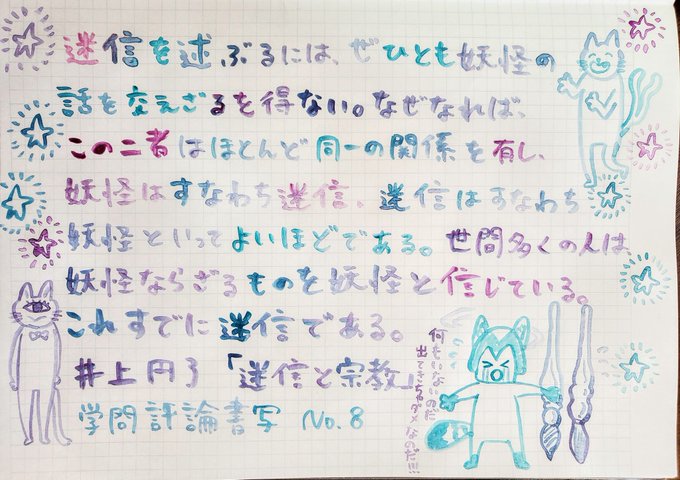 迷信を述ぶるには、ぜひとも妖怪の
話を交えざるを得ない。なぜなれば、
この二者はほとんど同一の関係を有し、
妖怪はすなわち迷信、迷信はすなわち
妖怪といってよいほどである。世間多くの人は
妖怪ならざるものを妖怪と信じている。
これすでに迷信である。
井上円了「迷信と宗教」
学問評論書写 No.8